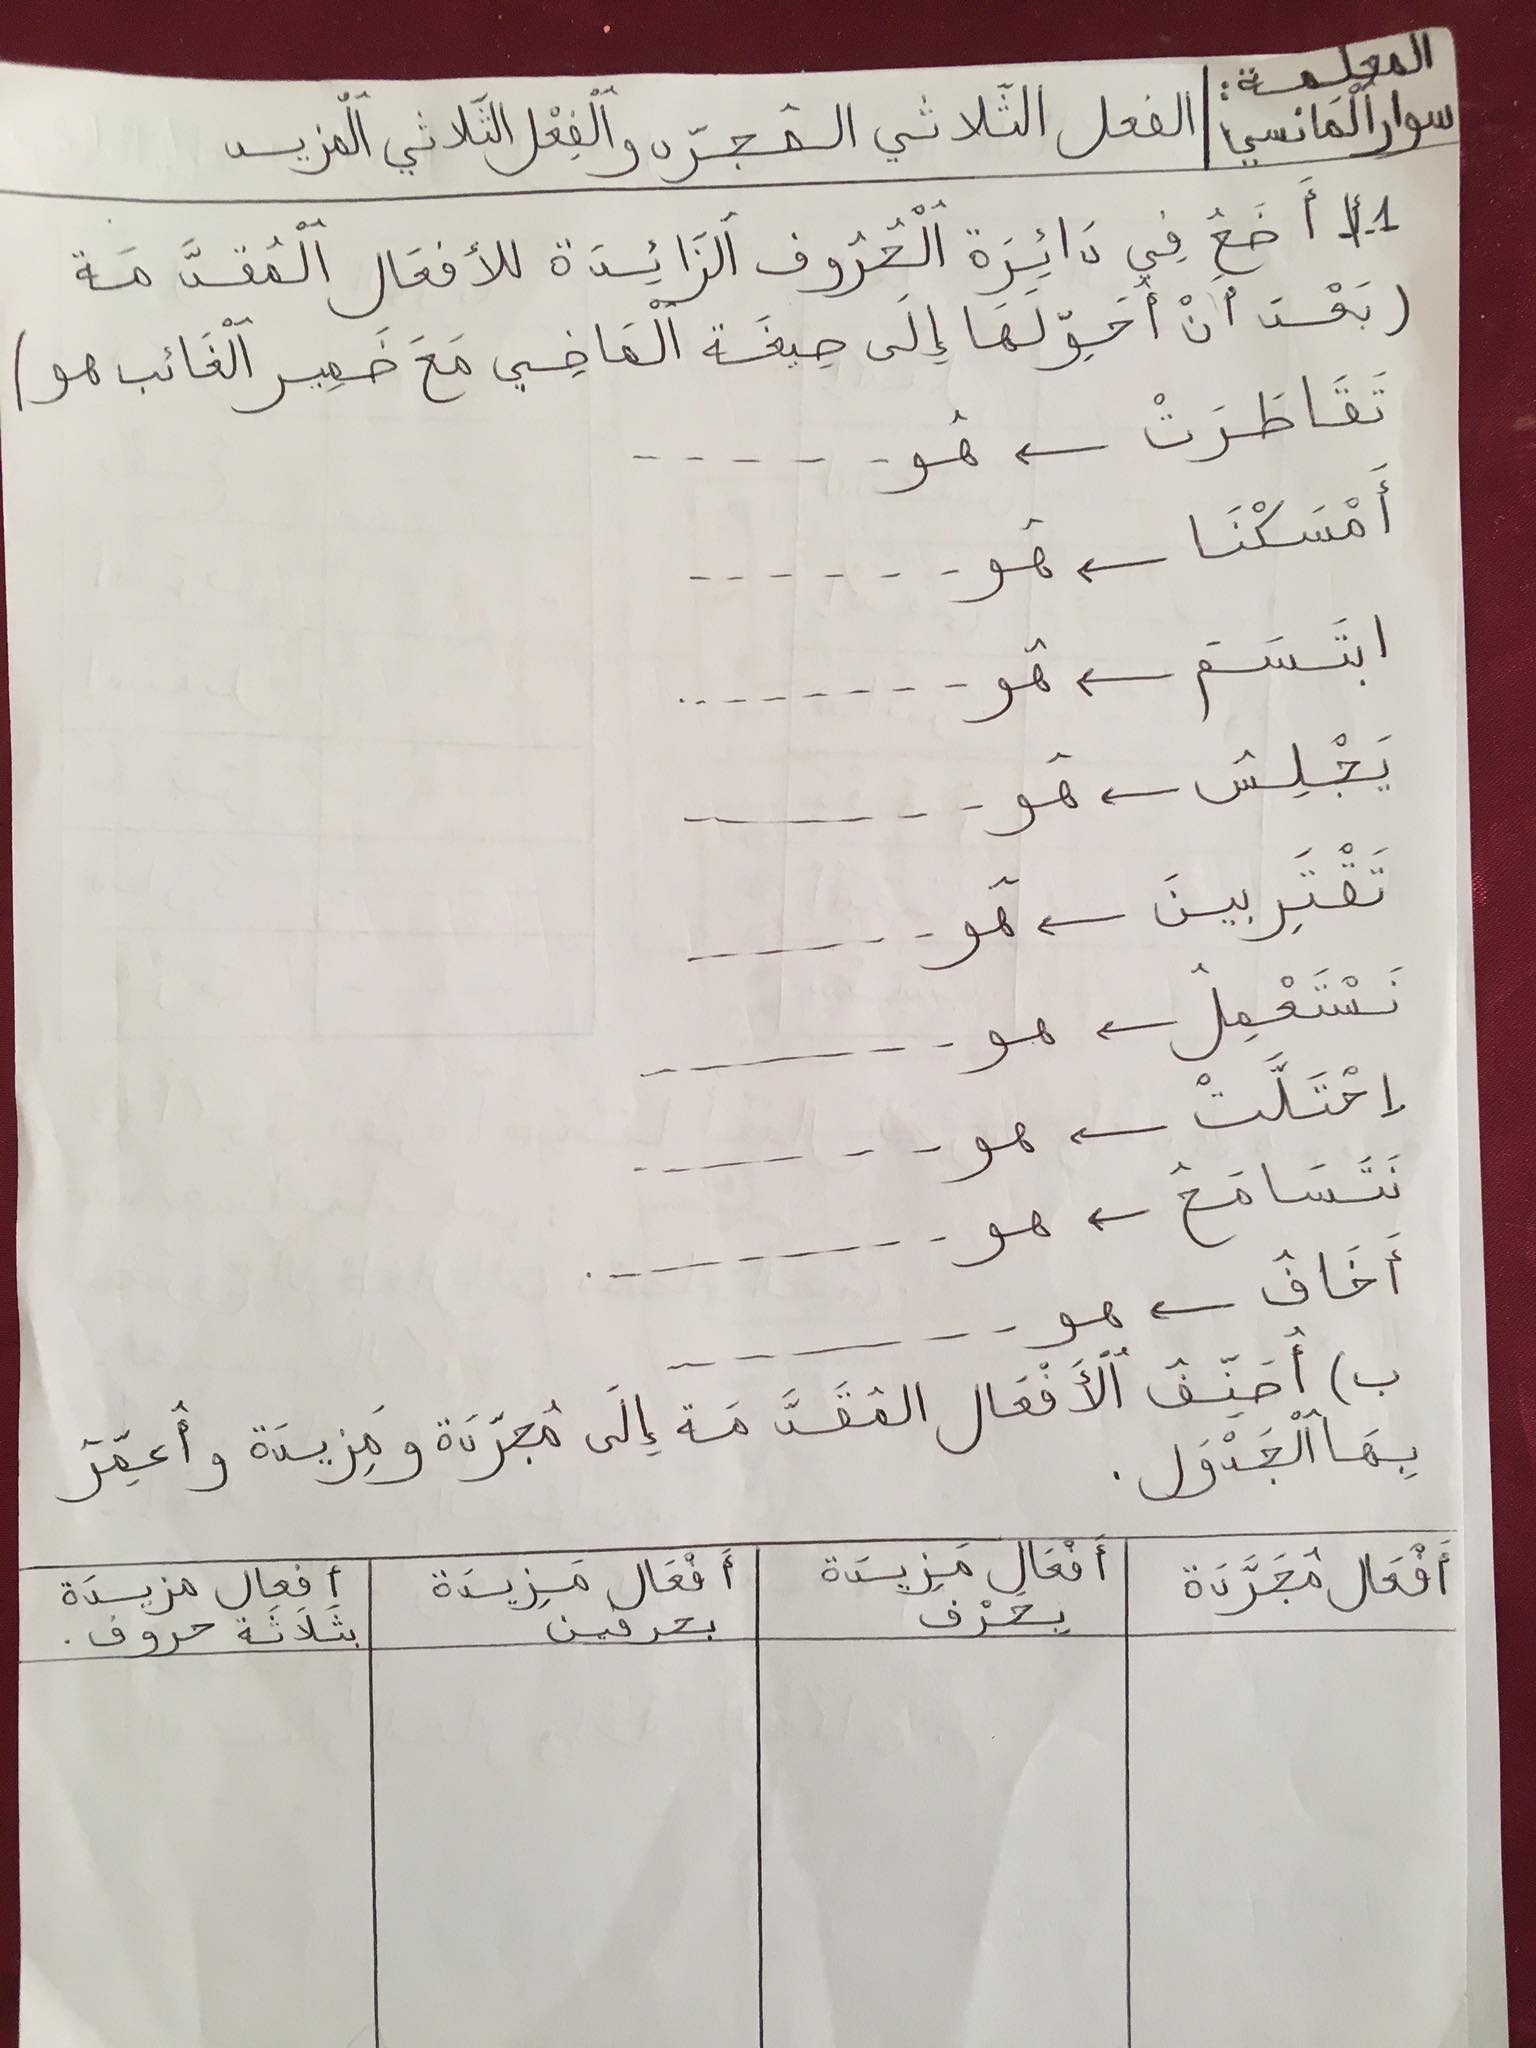 المعلمة:
سوار ٱلْمَانسي:
الفعل الثّلاثي المُجرّد وٱلْفِعْل الثّلاثي ٱلْمزيد
1.أ/ أَضَعُ فِي دَائِرَة ٱلْحُرُوف ٱلزَّائِدَة للأفعَال ٱلْمُقدَّمَة
(بَعْدَ أنْ أُحَوِّلَهَا إِلَى صِيغَة ٱلْمَاضِي مَعَ ضَمِير ٱلْغَائب هو)
تَقَاطَرَتْ ← هُو - - - - - -
أَمْسَكْنَا ← هُو - - - - - -
ابتَسَمَ ← هُو - - - - - - - .
يَجْلِسُ ← هُو - - - - - -
تَقْتَرِبِينَ ← هُو - - - - - -
نَسْتَعْمِلُ ← هو - - - - - - -
اِحْتَلَّتْ ← هو - - - - - - - .
نَتَسَامَحُ ← هو - - - - - - - - .
أَخَافُ ← هو - - - - - - -
ب) أُصَنِّفُ ٱلْأَفْعَال المُقَدَّمَة إِلَى مُجرَّدَة ومَزِيدَة وأُعمِّرُ
بِهَا ٱلْجَدْوَل .
أَفْعَال مُجَرَّدَة
أَفْعَال مَزِيدَة بِحَرْف
أَفْعَال مَزِيدَة بحرفين
أفعال مزيدَة بثَلَاثَة حروف .